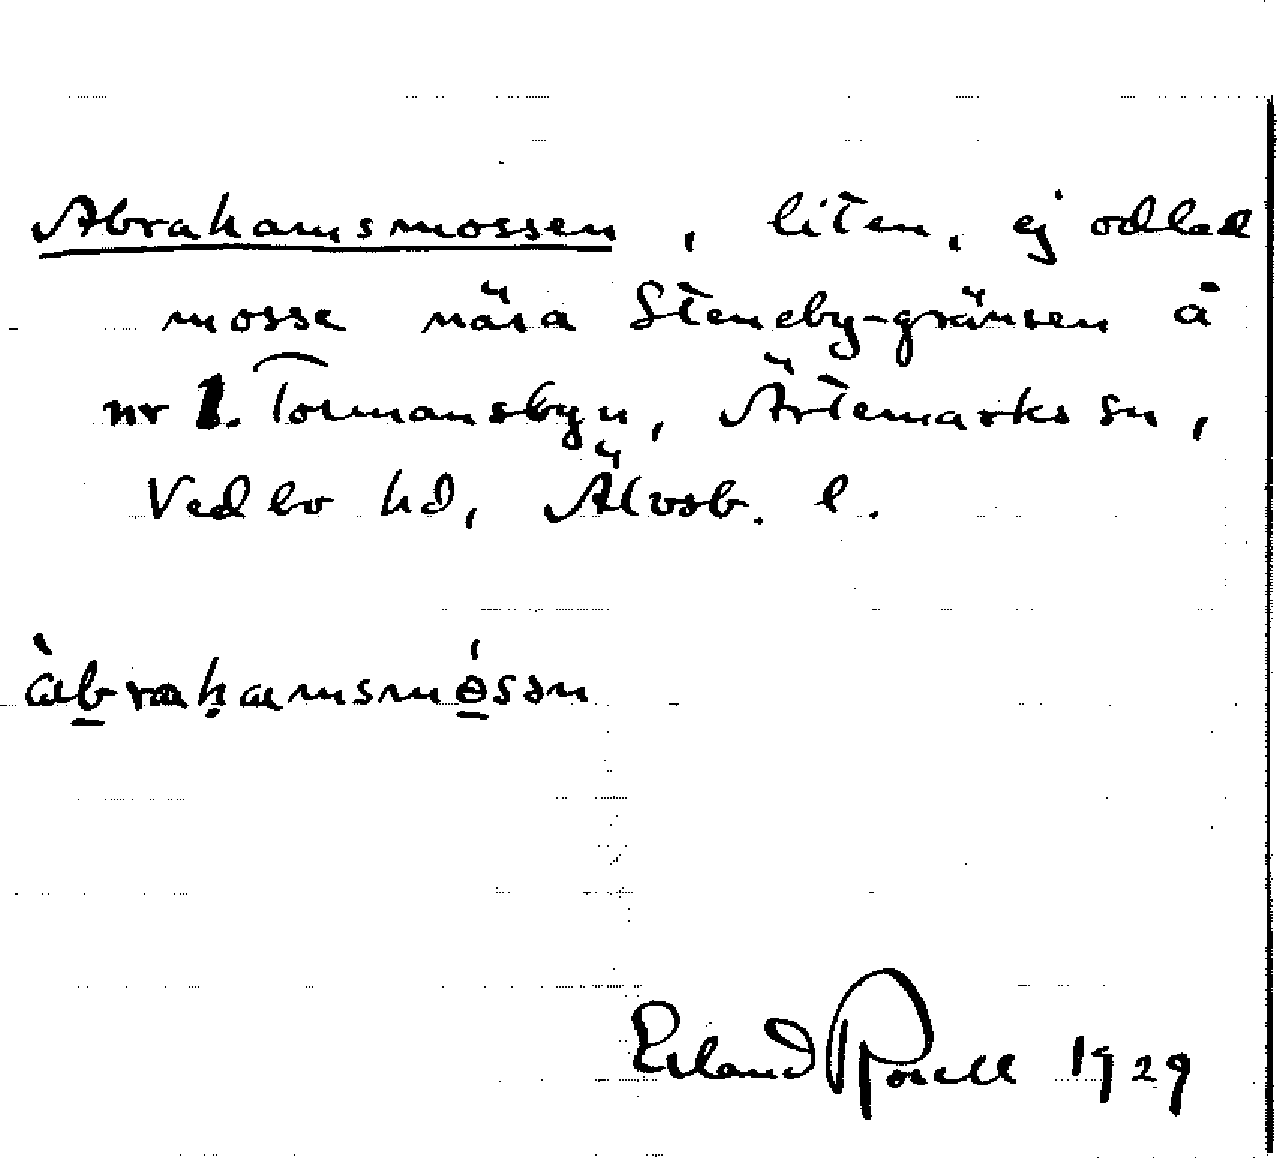 Abrahamsmossen, liten, ej odlad
mosse nära Steneby-gränsen å
nr 1. Tormansbyn, Ärtemarks sn,
Vedbo hd, Älvsb. l.
àbrahamsmósən
Erland Rosell 1929